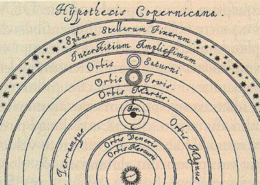 Hypothesis Copernicana.
Sphæra Stellarum Fixarum.
Interstitium Amplissimum
Orbis Saturni.
Orbis Iovis.
Orbis Martis.
Ter.
Terramque
Orbis Magnus
Orbis Veneris
Orbis Mercurii